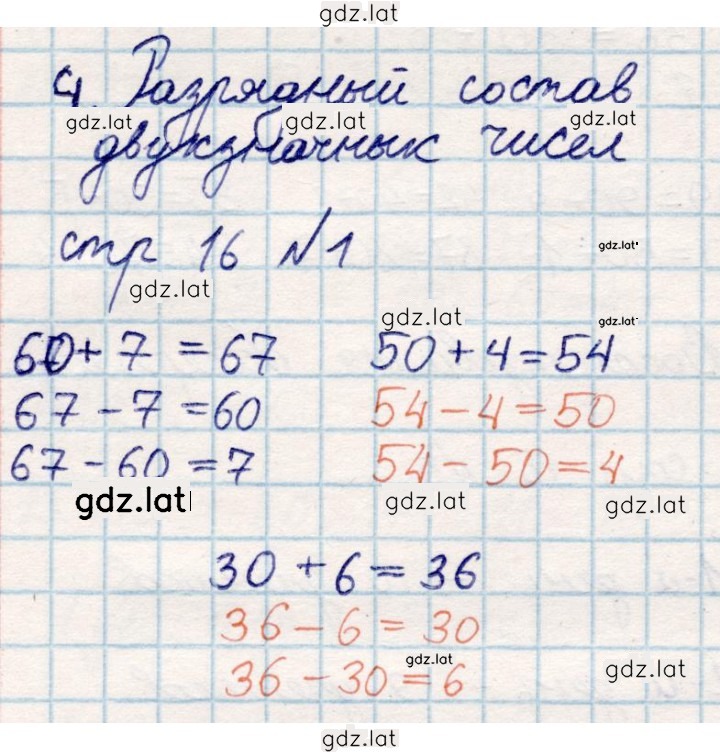 gdz.lat
4. Разрядный состав
gdz.lat gdz.lat gdz.lat
двухзначных чисел
стр 16 №1 gdz.lat
gdz.lat
gdz.lat gdz.lat
60 + 7 = 67 50 + 4 = 54
67 - 7 = 60 54 - 4 = 50
67 - 60 = 7 54 - 50 = 4
gdz.lat gdz.lat gdz.lat
30 + 6 = 36
36 - 6 = 30
gdz.lat gdz.lat
36 - 30 = 6
gdz.lat